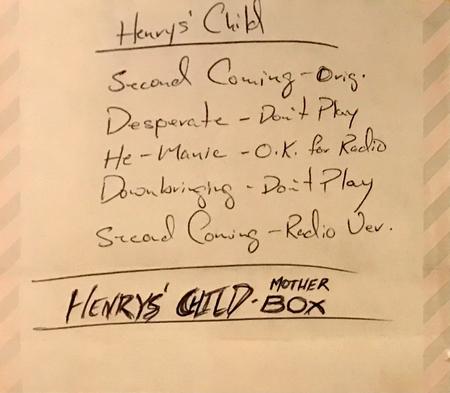 Henrys' Child
Second Coming - Orig.
Desperate - Don't Play
He - Manic - O.K. for Radio
Downbringing - Don't Play
Second Coming - Radio Ver.
HENRYS' CHILD - MOTHER BOX